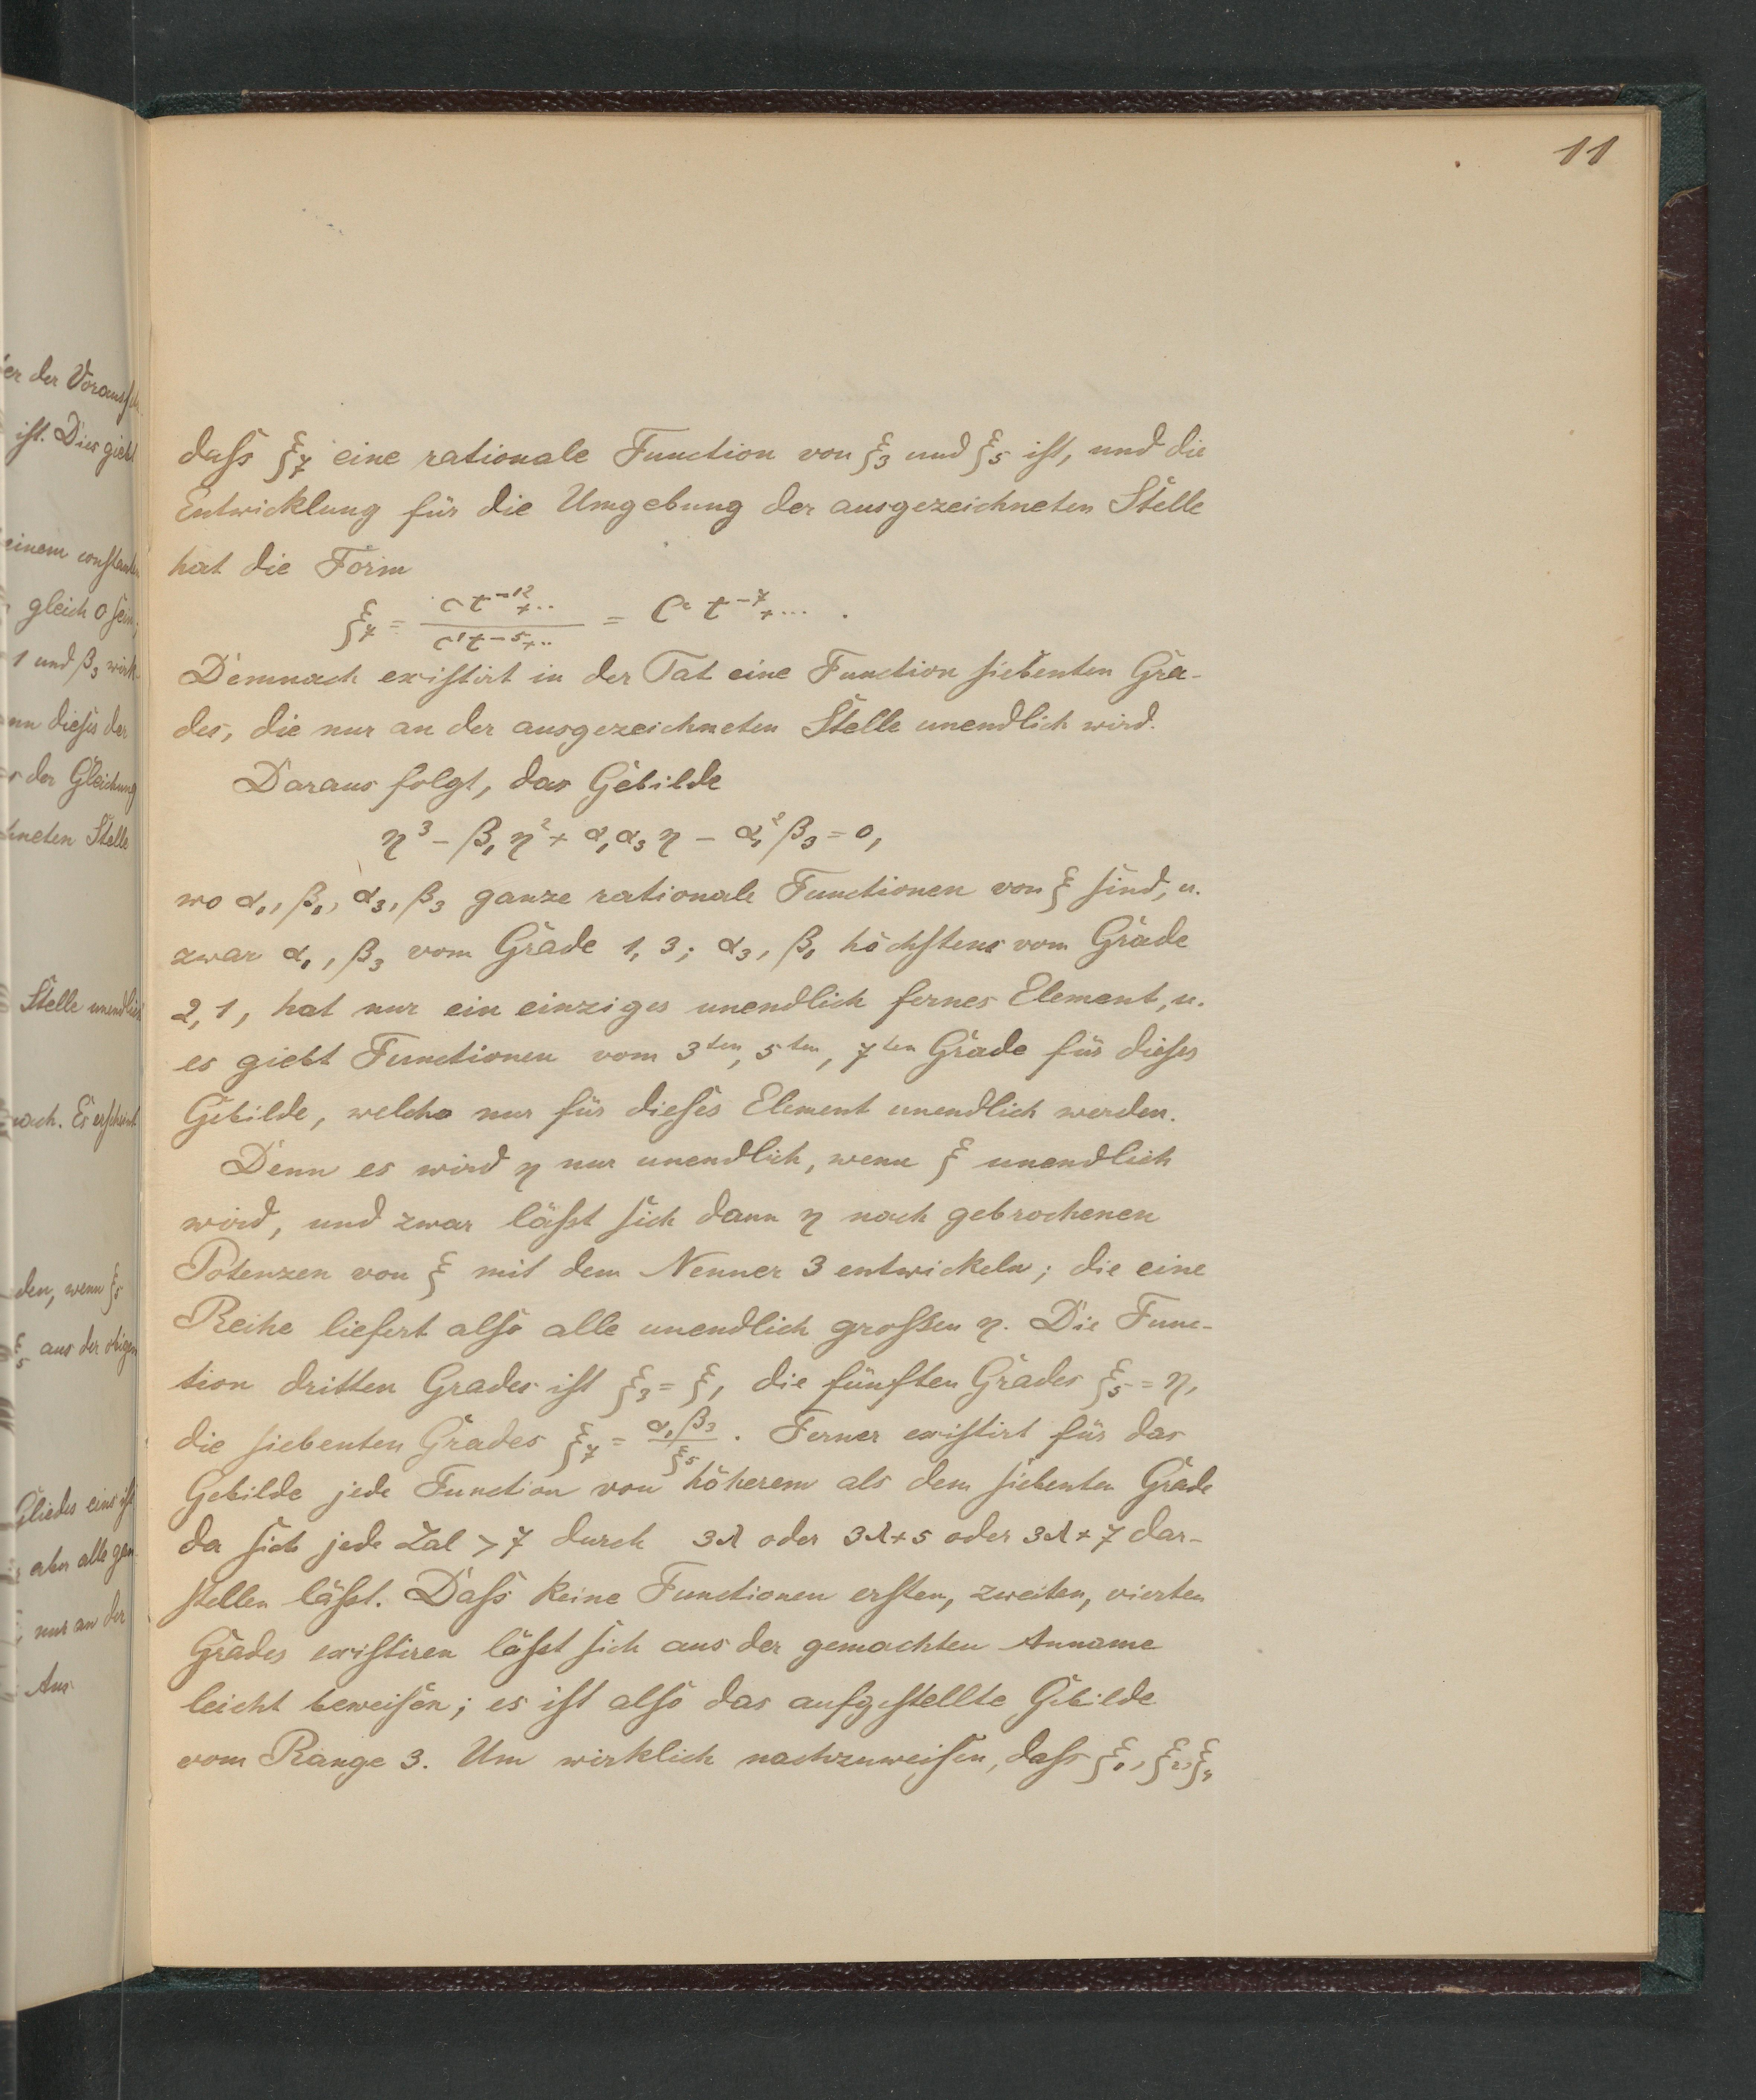 11
er der Vorauss
ist. Dies giebt
einem constanten
gleich 0 sein;
1 und β₃ wirk-
nn dieses der
der Gleichung
hneten Stelle
Stelle unendlich
nach. Es erscheint
den, wenn ξ₅
ξ₅ aus der obigen
Gliedes eins ist
aber alle gan
nur an der
Aus
dass ξ₇ eine rationale Function von ξ₃ und ξ₅ ist, und die
Entwicklung für die Umgebung der ausgezeichneten Stelle
hat die Form
ξ₇ = (c t⁻¹²+..)/(c' t⁻⁵+..) = C t⁻⁷+... .
Demnach existirt in der Tat eine Function siebenten Gra-
des, die nur an der ausgezeichneten Stelle unendlich wird.
Daraus folgt, das Gebilde
η³ - β₁η² + α₁α₃η - α₁²β₃ = 0,
wo α₁, β₁, α₃, β₃ ganze rationale Functionen von ξ sind, u.
zwar α₁, β₃ vom Grade 1, 3; α₃, β₁ höchstens vom Grade
2, 1, hat nur ein einziges unendlich fernes Element, u.
es giebt Functionen vom 3ten, 5ten, 7ten Grade für dieses
Gebilde, welche nur für dieses Element unendlich werden.
Denn es wird η nur unendlich, wenn ξ unendlich
wird, und zwar lässt sich dann η nach gebrochenen
Potenzen von ξ mit dem Nenner 3 entwickeln; die eine
Reihe liefert also alle unendlich grossen η. Die Func-
tion dritten Grades ist ξ₃ = ξ, die fünften Grades ξ₅ = η,
die siebenten Grades ξ₇ = α₁β₃/ξ₅. Ferner existirt für das
Gebilde jede Function von höherem als dem siebenten Grade
da sich jede Zal > 7 durch 3λ oder 3λ+5 oder 3λ+7 dar-
stellen lässt. Dass keine Functionen ersten, zweiten, vierten
Grades existiren lässt sich aus der gemachten Anname
leicht beweisen; es ist also das aufgestellte Gebilde
vom Range 3. Um wirklich nachzuweisen, dass ξ₁, ξ₂, ξ₄